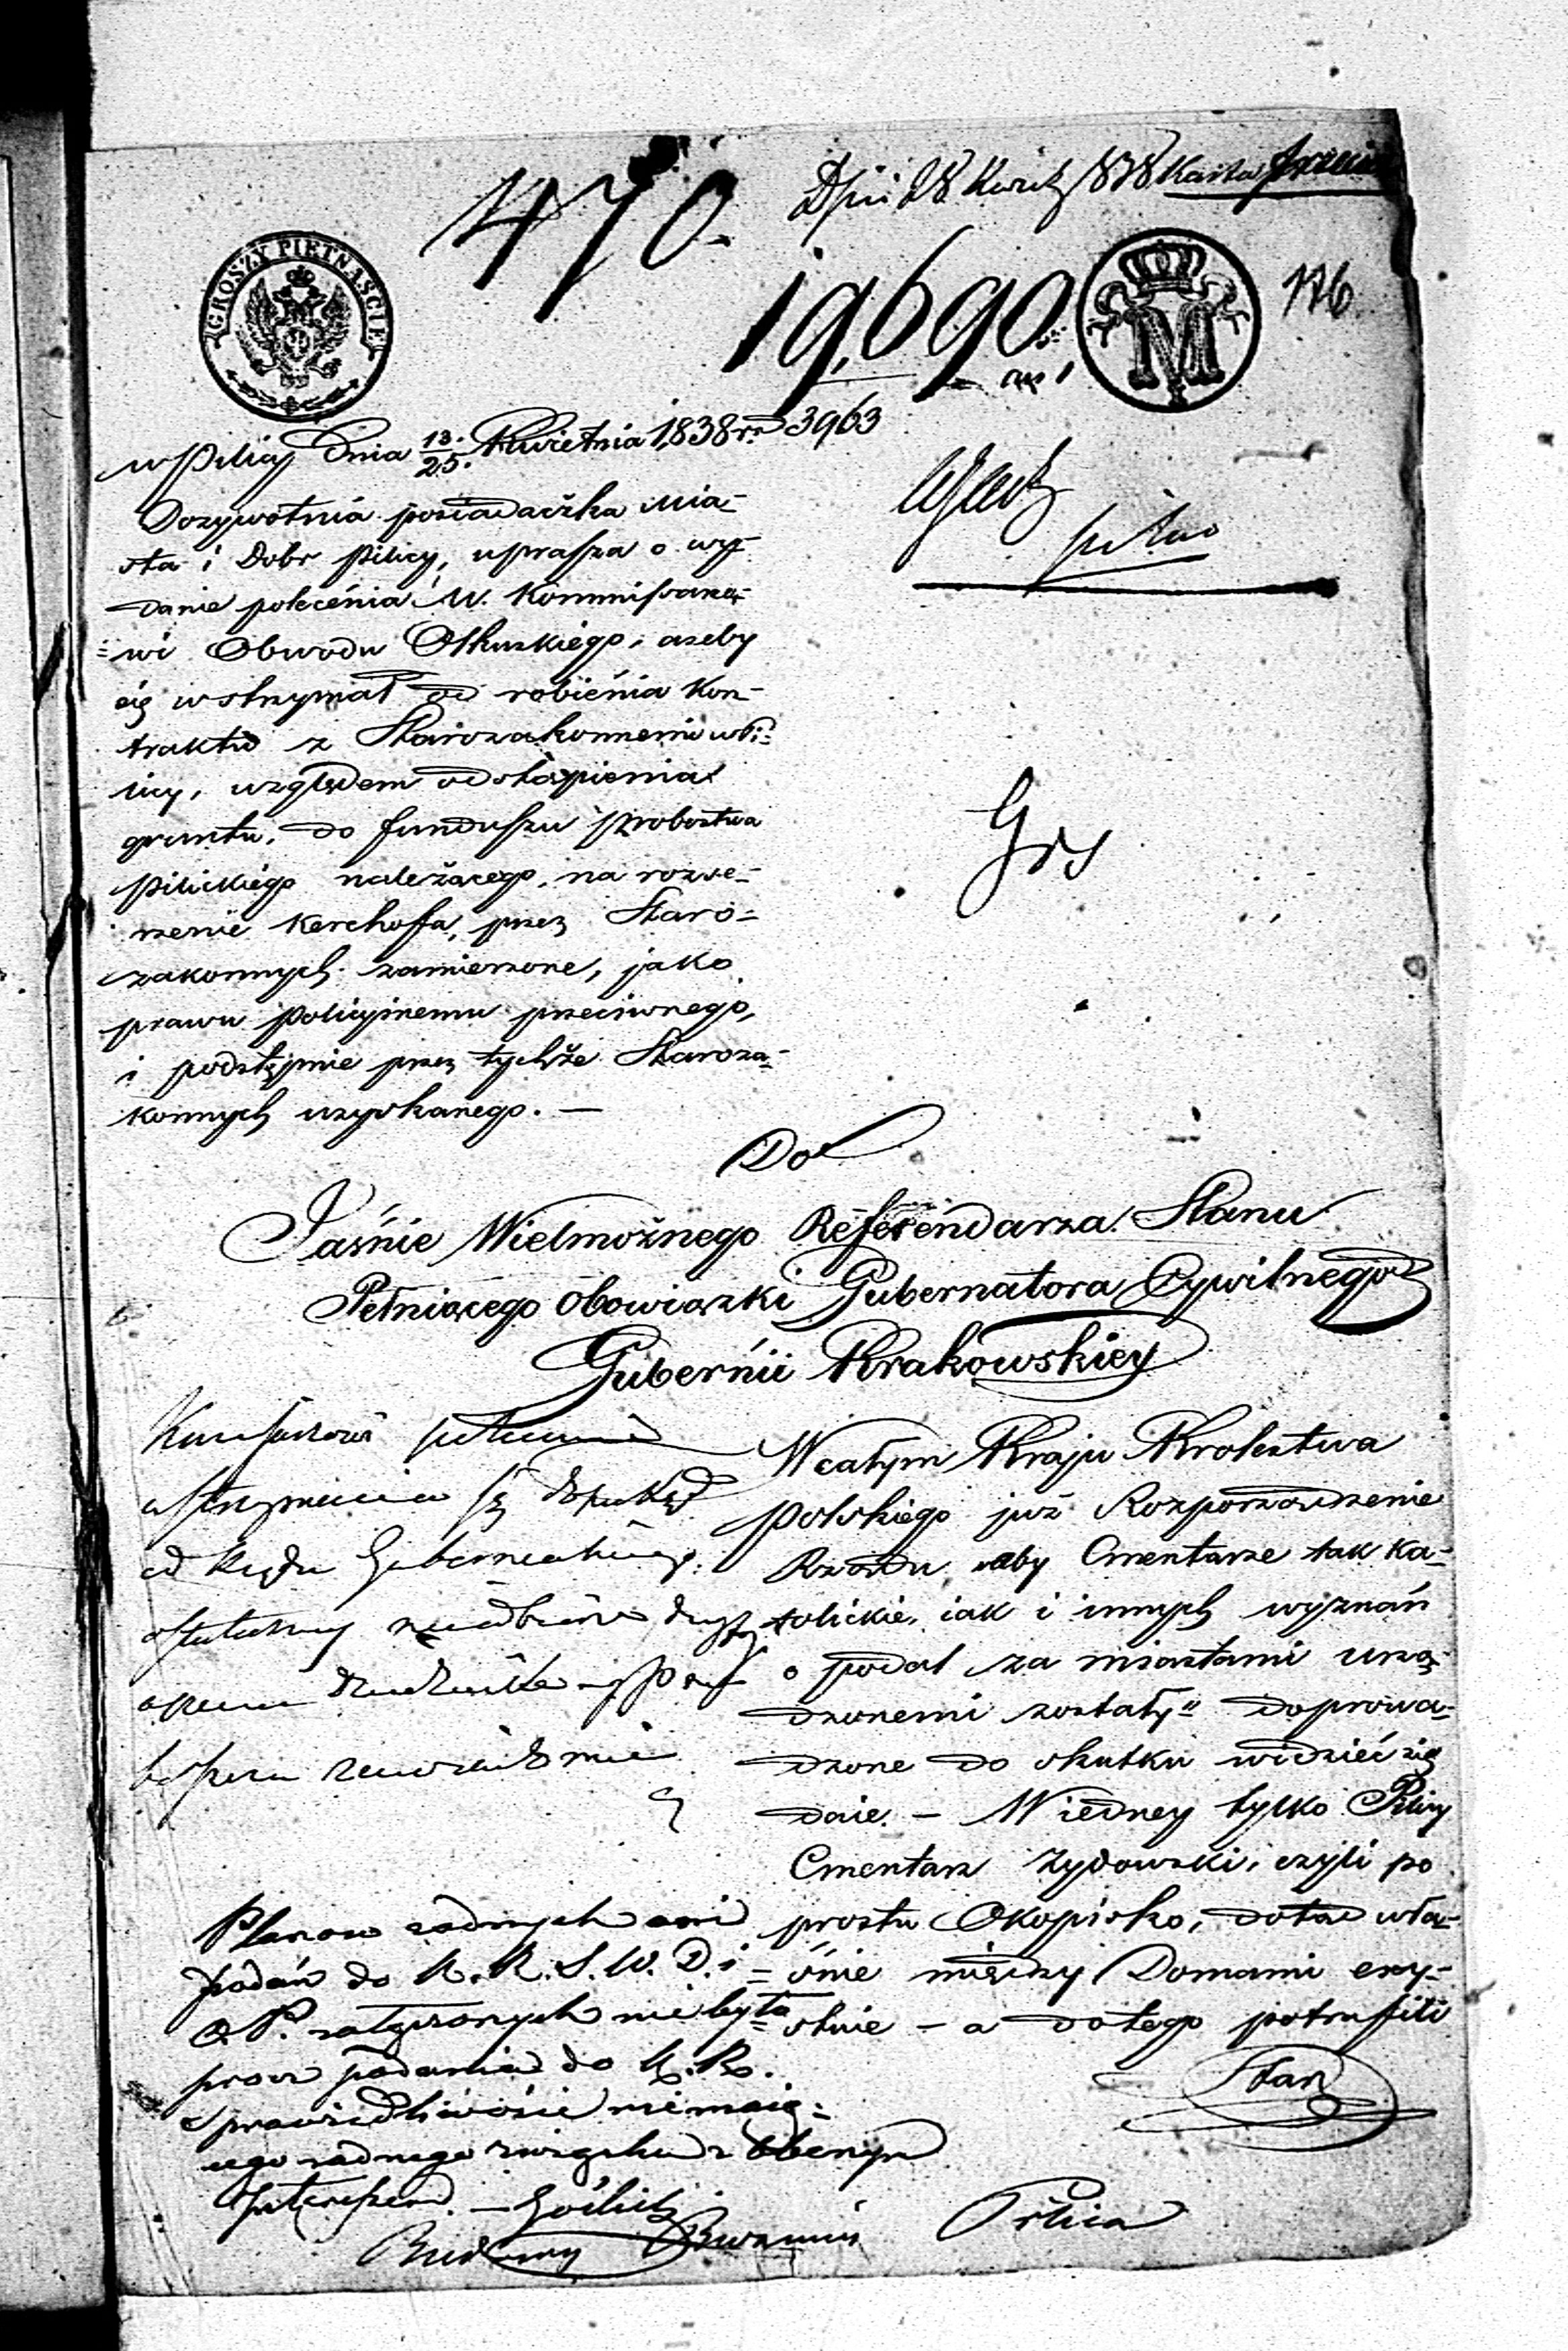 470.
Dnia 28 Kwiet 1838
19,690.
GROSZY PIETNAŚCIE
M
176
w Pilicy Dnia 13/25. Kwietnia 1838 r. 3963
Dozywotnia posiadaczka Mia-
sta i Dobr Pilicy, uprasza o wy-
danie polecenia W. Kommissarzo-
=wi Obwodu Olkuskiego, azeby
się wstrzymał od robienia Kon-
traktu z Starozakonnemi w Pi=
licy, względem odstąpienia
gruntu, do funduszu Probostwa
Pilickiego należącego, na rozsze-
rzenie Kerchoffa, przez Staro-
zakonnych zamierzone, jako
prawu Policyinemu przeciwnego,
i podstępnie przez tychże Staroza-
konnych uzyskanego. —
Do
Jaśnie Wielmożnego Referendarza Stanu
Pełniącego Obowiązki Gubernatora Cywilnego
Gubernii Krakowskiey
W całym Kraju Krolestwa
Polskiego już Rozporządzenie
Rządu aby Cmentarze tak ka-
tolickie, iak i innych wyznań
opodal za miastami urzą-
dzonemi zostały" doprowa-
dzone do skutku widzieć się
daie. — W iedney tylko Pilicy
Cmentarz Zydowski, czyli po
prostu Okopisko, dotąd wła-
śnie między Domami exy-
stuie — a dotego potrafili
Star
wstrzymania się dopokąd
od Rządu Gubernialnego
Planow zadnych ani
podań do K. R. S. W. D. i
O. P. załączonych nie było
procz podania do K. R.
Sprawiedliwości niemaią=
cego zadnego związku z obecnym
Interessem. —
Pilica